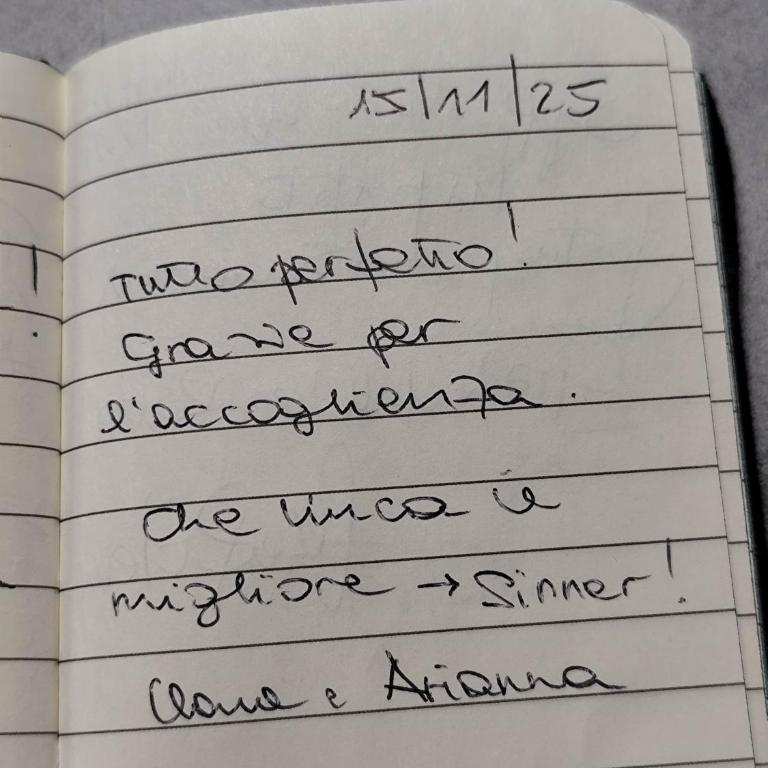 15/11/25
Tutto perfetto!
Grazie per
l'accoglienza.
Che vinca il
migliore → Sinner!
e Arianna